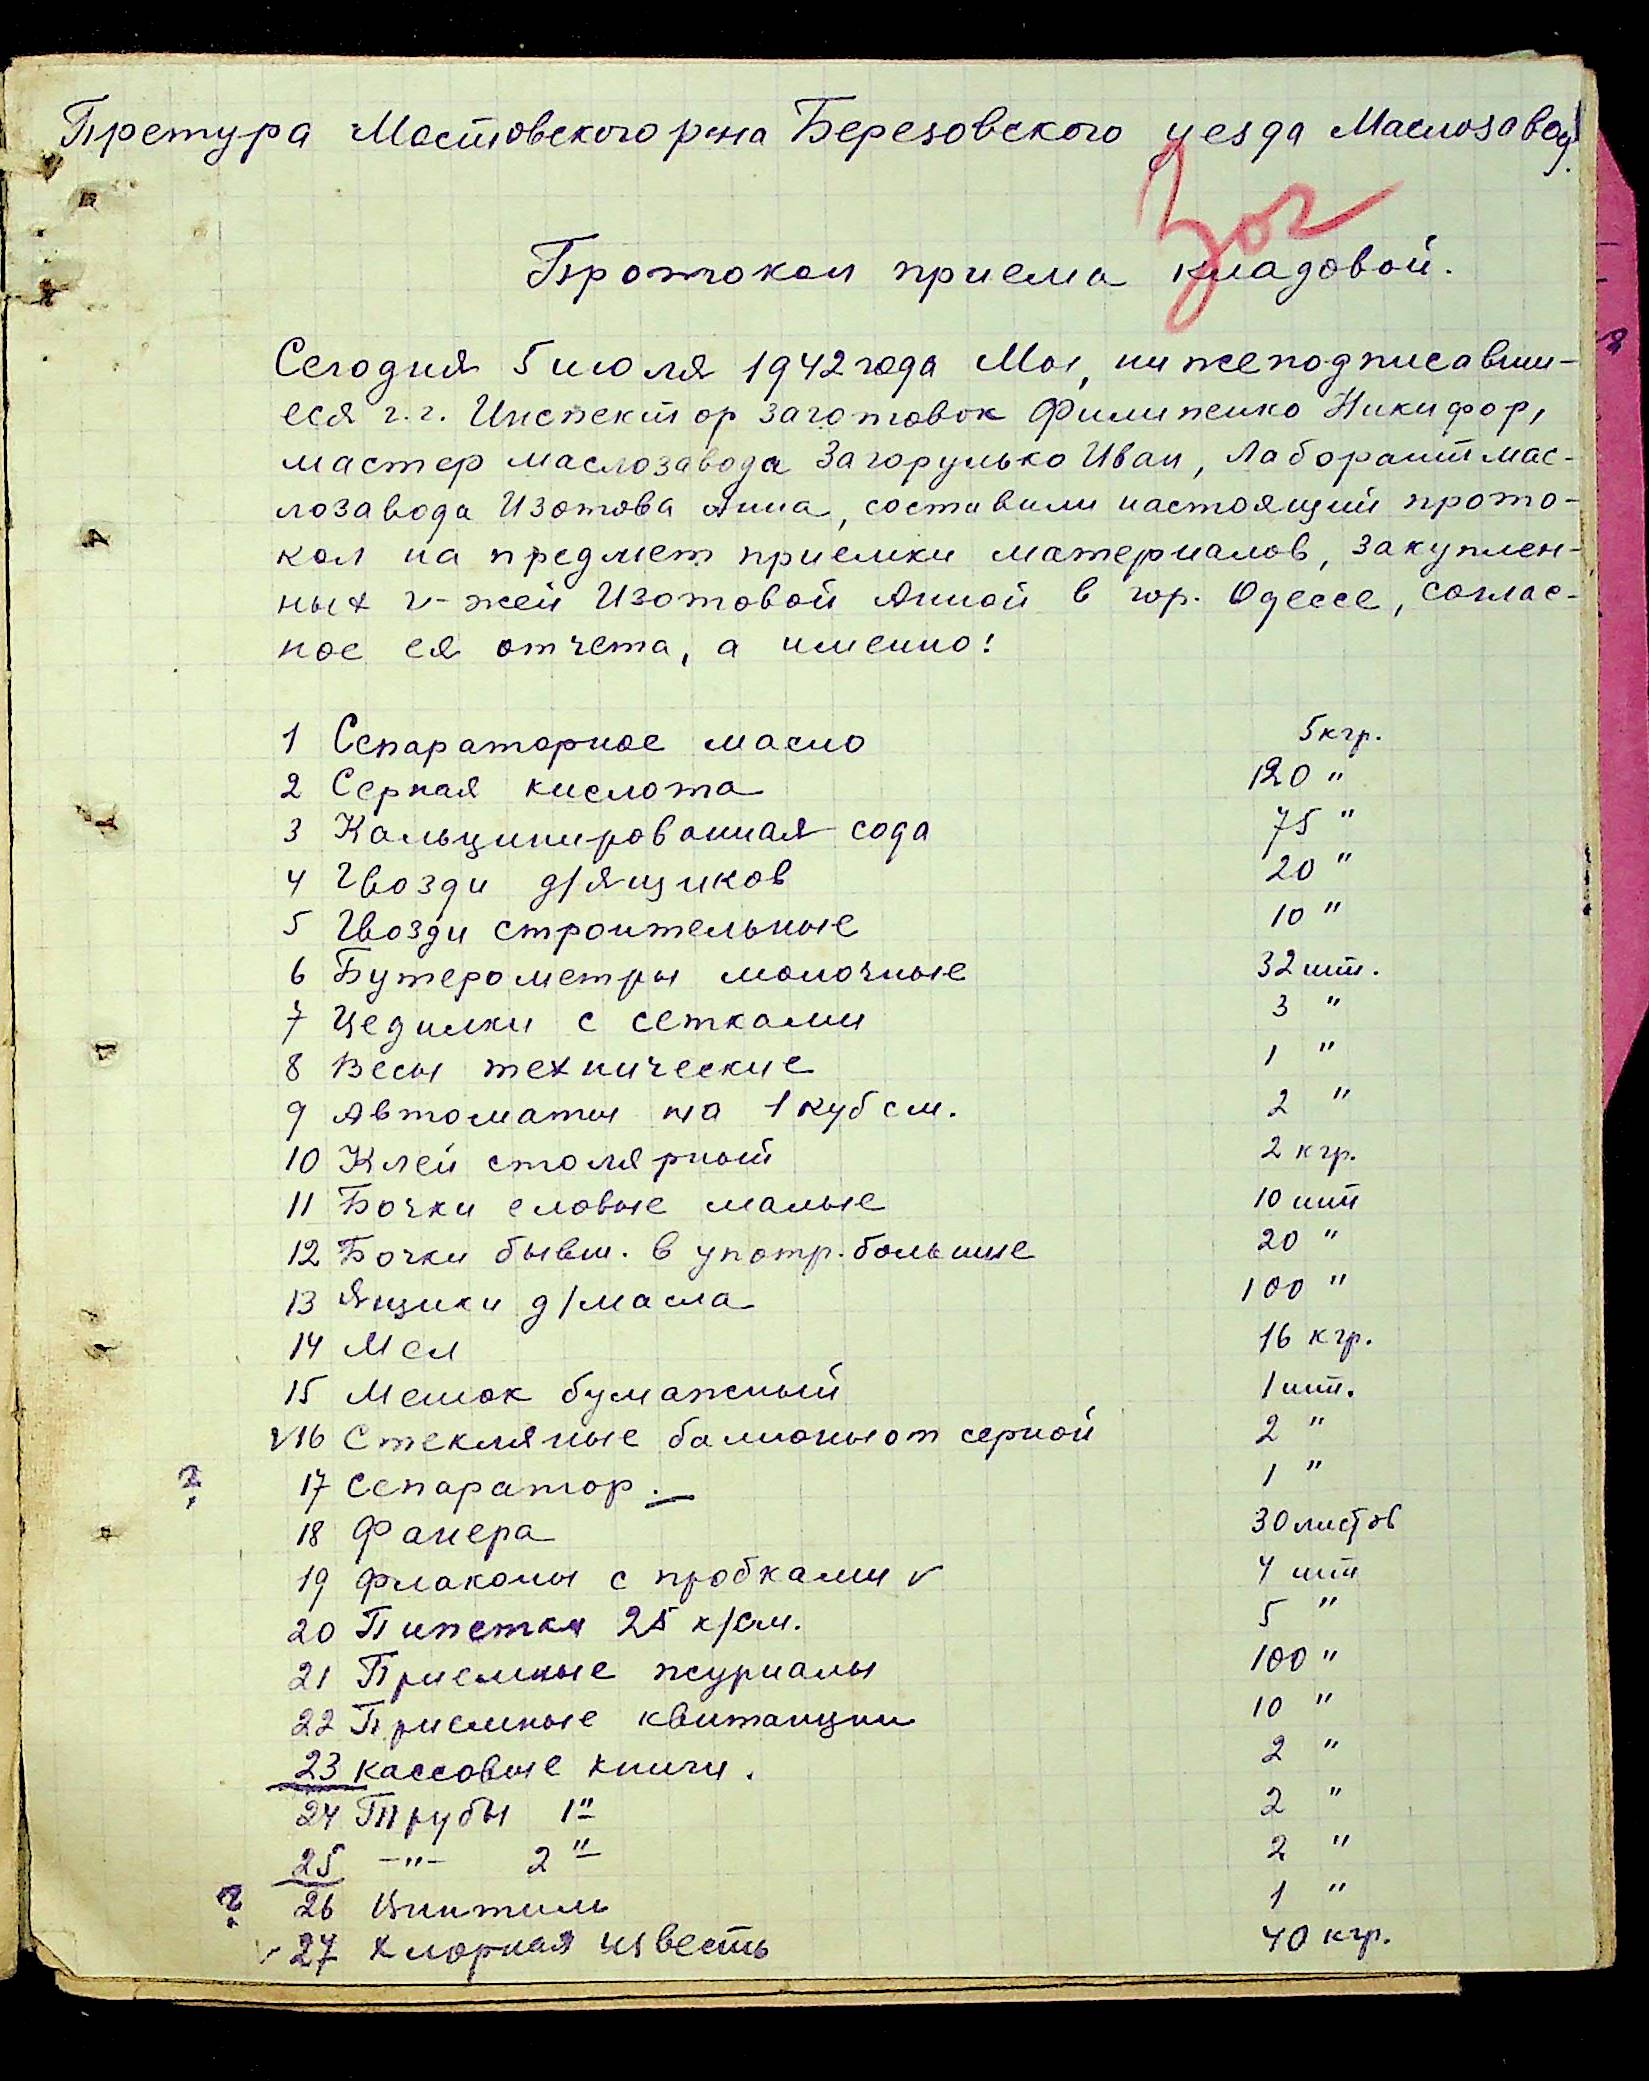 Претура Мостовского р-на Березовского уезда Маслозавод.
Протокол приема кладовой.
Сегодня 5 июля 1942 года Мы, нижеподписавши-
еся г.г. Инспектор заготовок Филипенко Никифор,
мастер маслозавода Загорулько Иван, Лаборант мас-
лозавода Изотова Анна, составили настоящий прото-
кол на предмет приемки материалов, закуплен-
ных г-жей Изотовой Анной в гор. Одессе, соглас-
ное ея отчета, а именно:
1 Сепараторное масло 5 кгр.
2 Серная кислота 120 "
3 Кальцинированная сода 75 "
4 Гвозди д/ящиков 20 "
5 Гвозди строительные 10 "
6 Бутерометры молочные 32 шт.
7 Цедилки с сетками 3 "
8 Весы технические 1 "
9 Автоматы на 1 куб см. 2 "
10 Клей столярный 2 кгр.
11 Бочки еловые малые 10 шт
12 Бочки бывш. в употр. большие 20 "
13 Ящики д/масла 100 "
14 Мел 16 кгр.
15 Мешок бумажный 1 шт.
√16 Стекляные балионы от серной 2 "
? 17 Сепаратор. 1 "
18 Фанера 30 листов
19 Флаконы с пробками √ 4 шт
20 Пипетки 25 к/см. 5 "
21 Приемные журналы 100 "
22 Приемные квитанции 10 "
23 кассовые книги. 2 "
24 Трубы 1" 2 "
25 -"- 2" 2 "
? 26 Винтиль 1 "
√ 27 Хлорная известь 40 кгр.